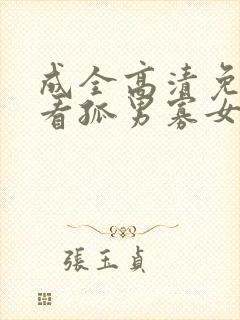 成全高清免
看孤男寡女
張玉貞